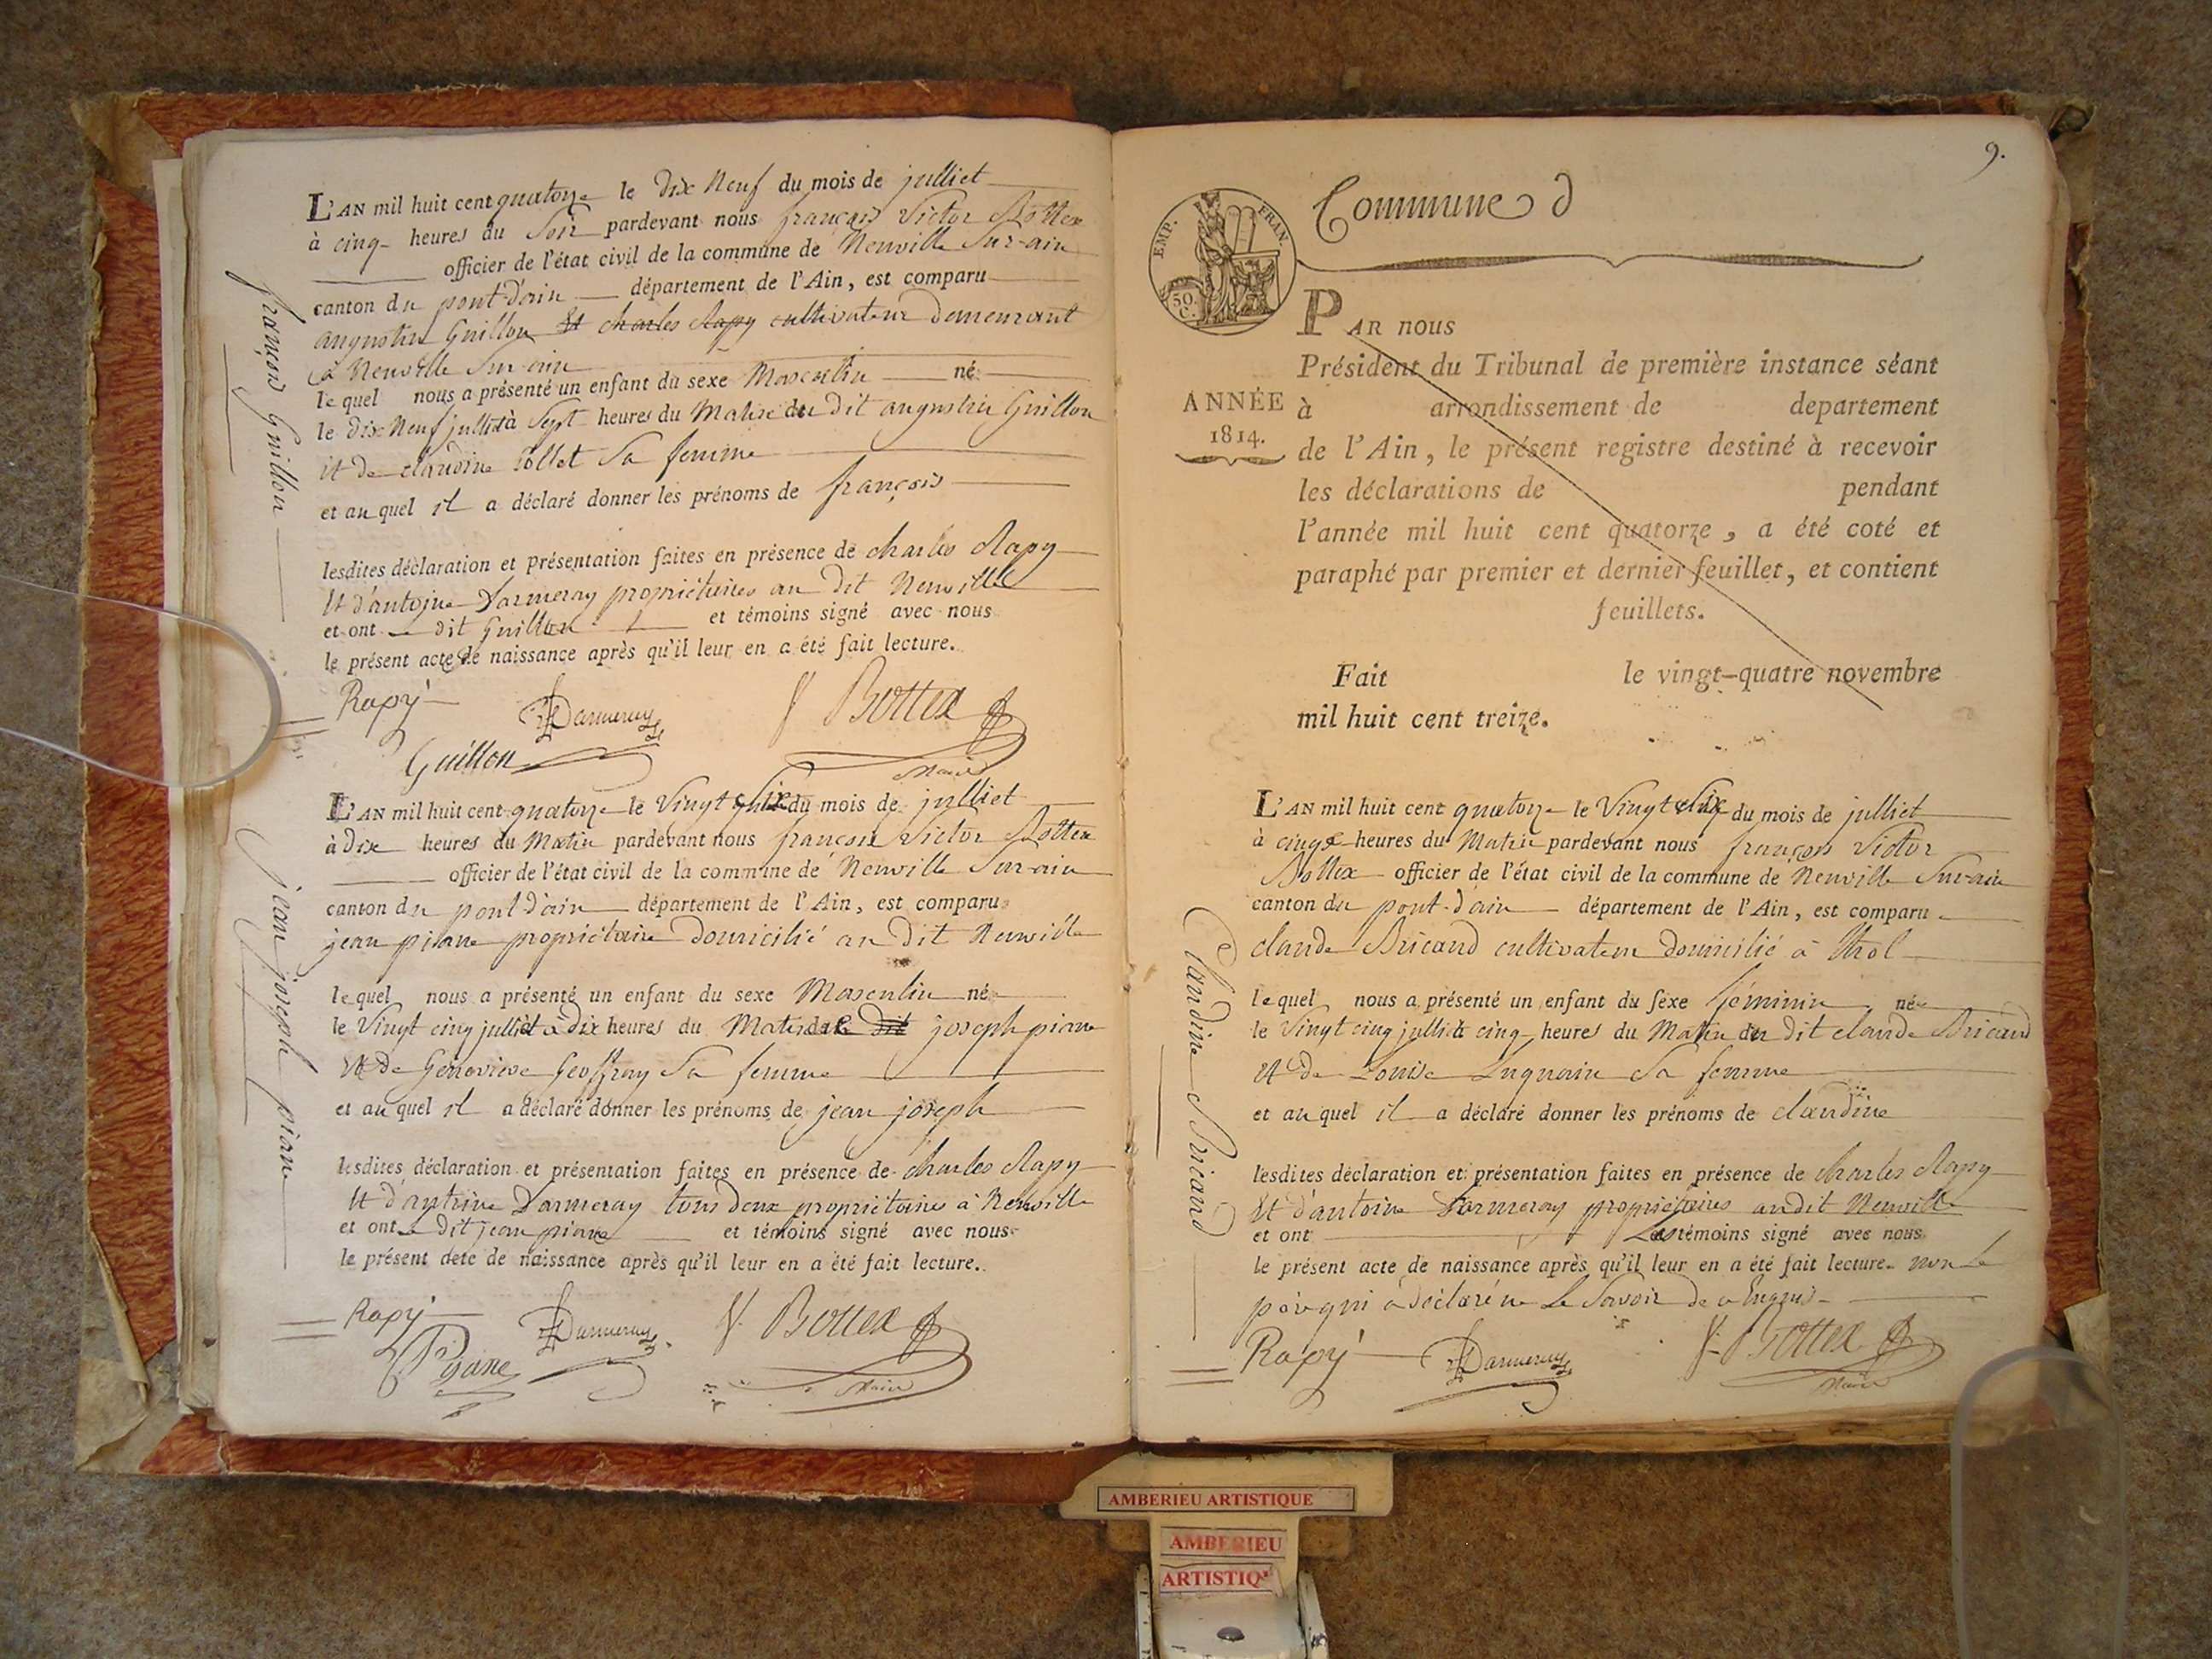 françois Guillon
L'AN mil huit cent quatorze le dix Neuf du mois de julliet
à cinq heures du Soir pardevant nous françois Victor Bottex
officier de l'état civil de la commune de Neuville Sur-ain
canton du pont-d'ain département de l'Ain, est comparu
augustin Guillon Et charles Rapy cultivateur demeurant
à Neuville Sur-ain
le quel nous a présenté un enfant du sexe Masculin né
le dix Neuf julliet à Sept heures du Matin du dit augustin Guillon
et de claudine Pollet Sa femme
et au quel il a déclaré donner les prénoms de françois
lesdites déclaration et présentation faites en présence de charles Rapy
Et d'antoine Darmeray propriétaires au dit Neuville
et ont le dit Guillon et témoins signé avec nous
le présent acte de naissance après qu'il leur en a été fait lecture.
Rapy Darmeray V Bottex
Guillon Maire
jean joseph piane
L'AN mil huit cent quatorze le Vingt Six du mois de julliet
à dix heures du Matin pardevant nous françois Victor Bottex
officier de l'état civil de la commune de Neuville Sur-ain
canton du pont d'ain département de l'Ain, est comparu
jean piane propriétaire domicilié au dit Neuville
le quel nous a présenté un enfant du sexe Masculin né
le Vingt cinq julliet à dix heures du Matin de dit joseph piane
Et de Genevieve Geoffray Sa femme
et au quel il a déclaré donner les prénoms de jean joseph
lesdites déclaration et présentation faites en présence de charles Rapy
Et d'antoine Darmeray tous deux propriétaires à Neuville
et ont le dit jean piane et témoins signé avec nous
le présent acte de naissance après qu'il leur en a été fait lecture.
Rapy Darmeray V. Bottex
Piane Maire
9.
Commune d
EMP. FRAN.
50. C.
ANNÉE
1814.
PAR nous
Président du Tribunal de première instance séant
à arrondissement de departement
de l'Ain, le présent registre destiné à recevoir
les déclarations de pendant
l'année mil huit cent quatorze, a été coté et
paraphé par premier et dernier feuillet, et contient
feuillets.
Fait le vingt-quatre novembre
mil huit cent treize.
Claudine Bricand
L'AN mil huit cent quatorze le Vingt Six du mois de julliet
à cinq heures du Matin pardevant nous françois Victor
Bottex officier de l'état civil de la commune de Neuville Sur-ain
canton du pont-d'ain département de l'Ain, est comparu
claude Bricand cultivateur domicilié à Thol
le quel nous a présenté un enfant du sexe féminin né
le Vingt cinq julliet à cinq heures du Matin du dit claude Bricand
et de Louise Sa femme
et au quel il a déclaré donner les prénoms de claudine
lesdites déclaration et présentation faites en présence de charles Rapy
Et d'antoine Darmeray propriétaires audit Neuville
et ont Les témoins signé avec nous
le présent acte de naissance après qu'il leur en a été fait lecture. non le
père qui a déclaré ne Le Savoir de ce Enquis
Rapy Darmeray V. Bottex
Maire
AMBERIEU ARTISTIQUE
AMBERIEU
ARTISTIQ